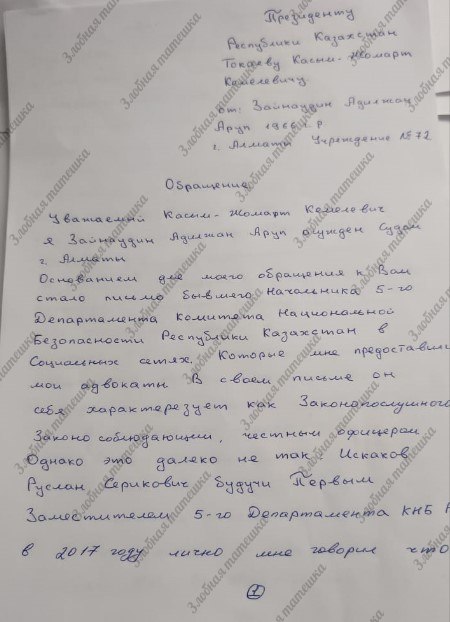 Президенту
Республики Казахстан
Токаеву Касым-Жомарт
Кемелевичу
от: Зайнаудин Адилжан
Аруп 1966 г.р
г. Алматы Учреждение №72
Обращение
Уважаемый Касым-Жомарт Кемелевич
я Зайнаудин Адилжан Аруп осужден Судом
г. Алматы
Основанием для моего обращения к Вам
стало письмо бывшего Начальника 5-го
Департамента Комитета Национальной
Безопасности Республики Казахстан в
Социальных сетях. Которые мне предоставили
мои адвокаты В своем письме он
себя характерезует как Законопослушного
Законо соблюдающим, честным офицером
Однако это далеко не так Искаков
Руслан Серикович будучи Первым
Заместителем 5-го Департамента КНБ
в 2017 году лично мне говорил что
1
Злобная татешка